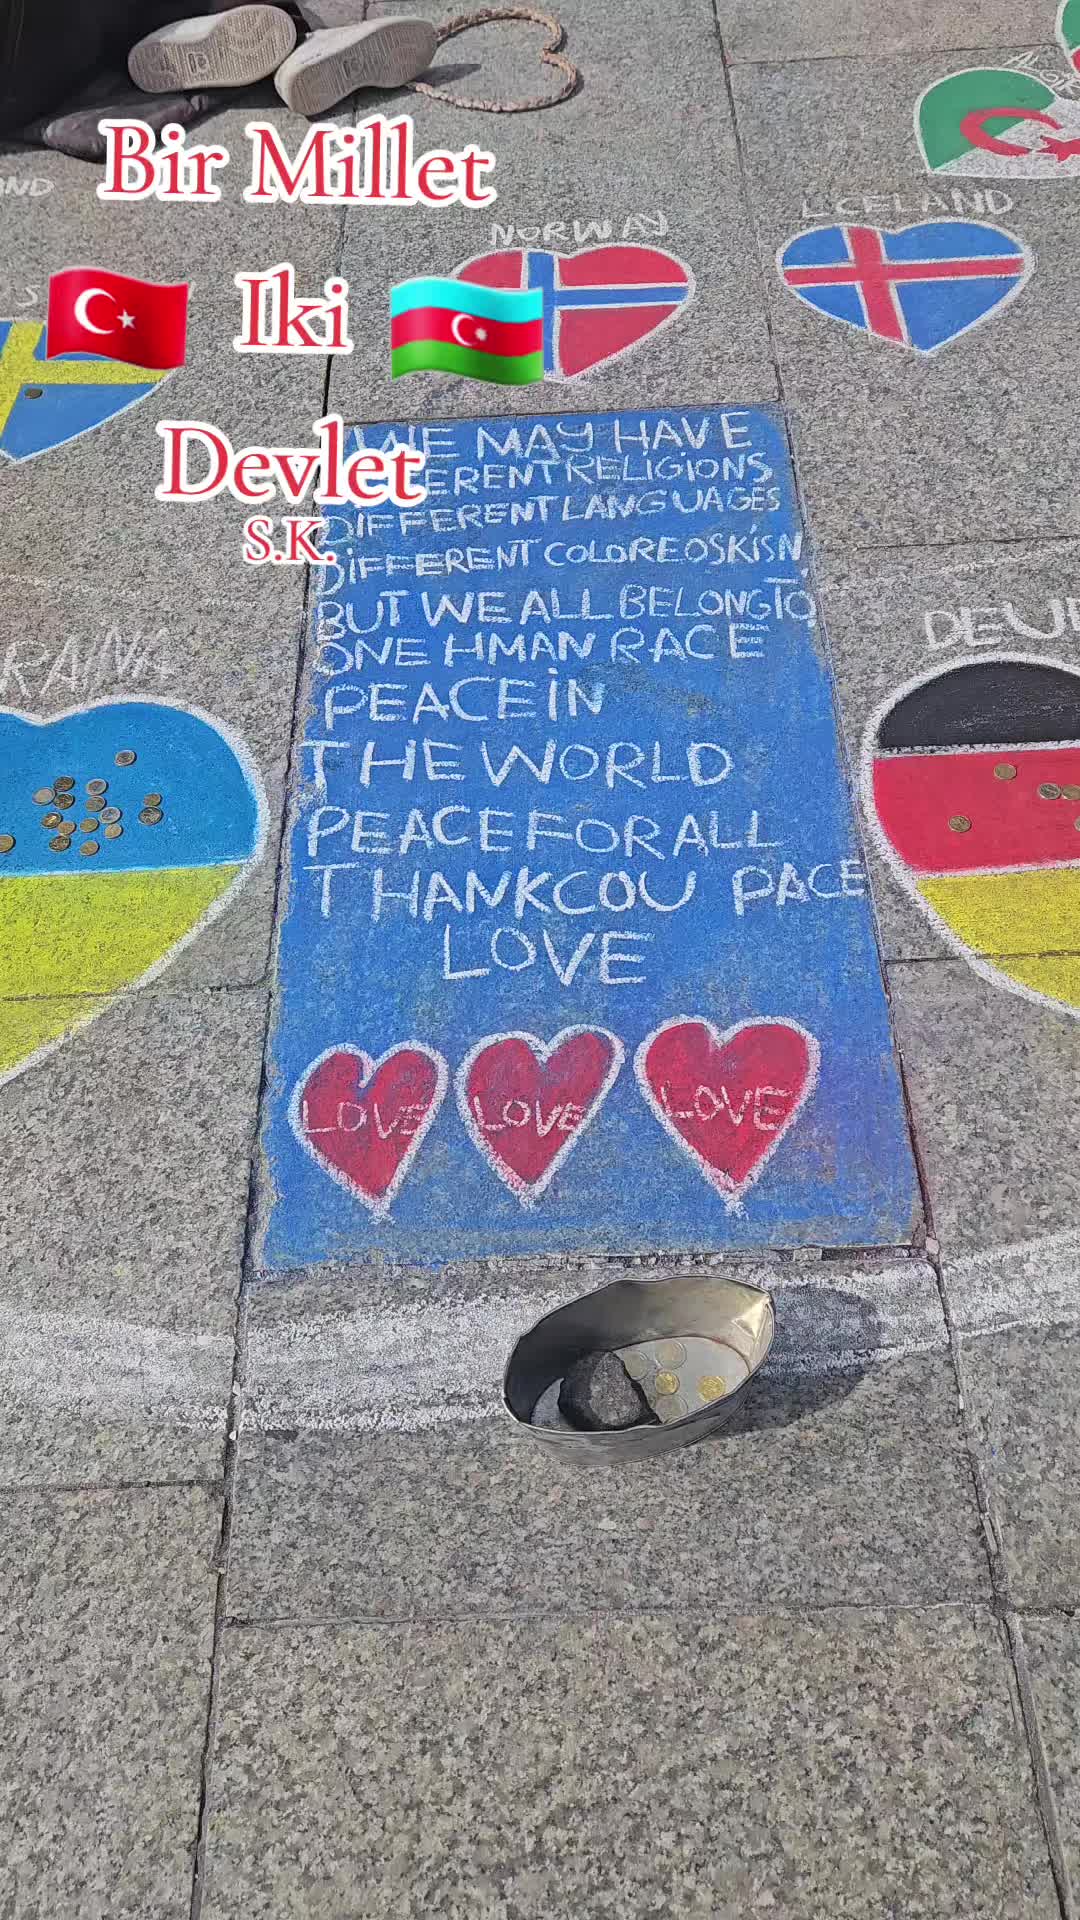 Bir Millet
Iki
Devlet
S.K.
NORWAY
WE MAY HAVE
RELIGIONS
DIFFERENT LANGUAGES
DIFFERENT COLOREOSKİSN,
BUT WE ALL BELONGTO
ONE HMAN RACE
PEACEİN
THE WORLD
PEACEFORALL
THANKCOU PACE
LOVE
LOVE LOVE LOVE